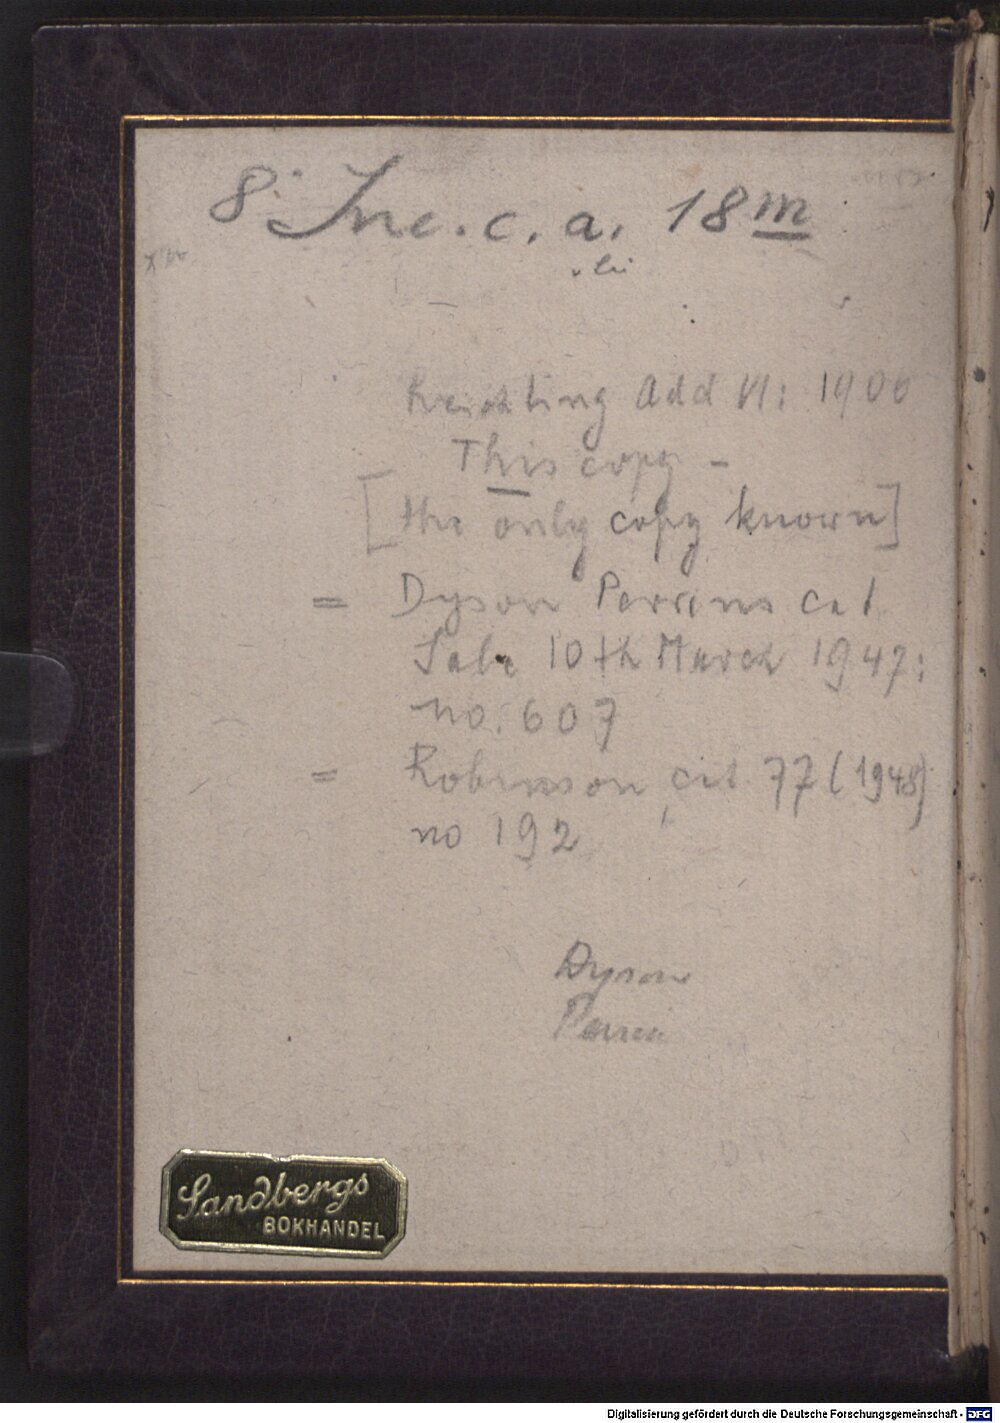 8° Inc. c. a. 18m
Reichling Add VI: 1900
This copy –
[the only copy known]
= Dyson Perrins cat
Sale 10th March 1947:
no. 607
= Robinson cat 77 (1948)
no 192
Dyson
Perrins
Sandbergs
BOKHANDEL
Digitalisierung gefördert durch die Deutsche Forschungsgemeinschaft - DFG